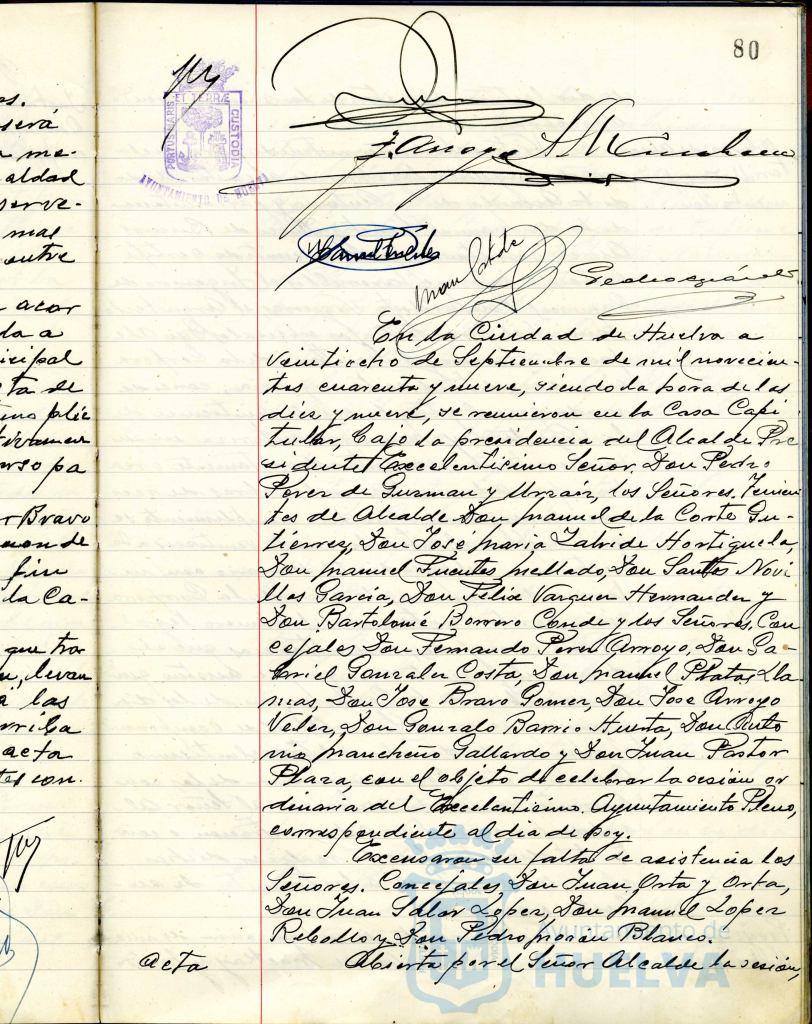 80
PORTUS MARIS ET TERRÆ CUSTODIA
AYUNTAMIENTO DE HUELVA
J. Arroyo
Manuel Fuentes
Manl Corte
s.
será
a me-
aldad
serve-
mas
entre
acor
da a
icipal
ta de
mo plie
tivamen
rso pa
r Bravo
fin
la Ca-
que tra
n, levan
a las
rriba
acta
tes con.
En la Ciudad de Huelva a
veintiocho de Septiembre de mil novecien-
tos cuarenta y nueve, siendo la hora de las
diez y nueve, se reunieron en la Casa Capi
tular, bajo la presidencia del Alcalde Pre
sidente Excelentisimo Señor. Don Pedro
Perez de Guzman y Urzaiz, los Señores. Tenien
tes de Alcalde Don Manuel de la Corte Gu-
tierrez, Don José Maria Labride Hortiguela,
Don Manuel Fuentes Mellado, Don Santos Novi
llos Garcia, Don Félix Vazquez Hernandez y
Don Bartolomé Borrero Conde y los Señores. Con
cejales Don Fernando Perez Arroyo, Don Ga-
briel Gonzalez Costa, Don Manuel Platas Lla
mas, Don Jose Bravo Gomez, Don Jose Arroyo
Velez, Don Gonzalo Barrio Huerta, Don Anto
nio Mancheño Gallardo y Don Juan Pastor
Plaza, con el objeto de celebrar la sesión or
dinaria del Excelentisimo. Ayuntamiento Pleno,
correspondiente al dia de hoy.
Excusaron su falta de asistencia los
Señores. Concejales Don Juan Orta y Orta,
Don Juan Salar Lopez, Don Manuel Lopez
Rebollo y Don Pedro Morón Blanco.
Acta
Abierta por el Señor Alcalde la sesión,
Ayuntamiento de
HUELVA